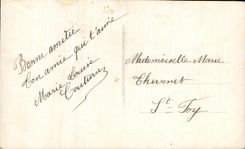 Bonne amitié
Ton amie qui t'aime
Marie Louise
Couturier
Mademoiselle Marie
Thevenet
St- Foy